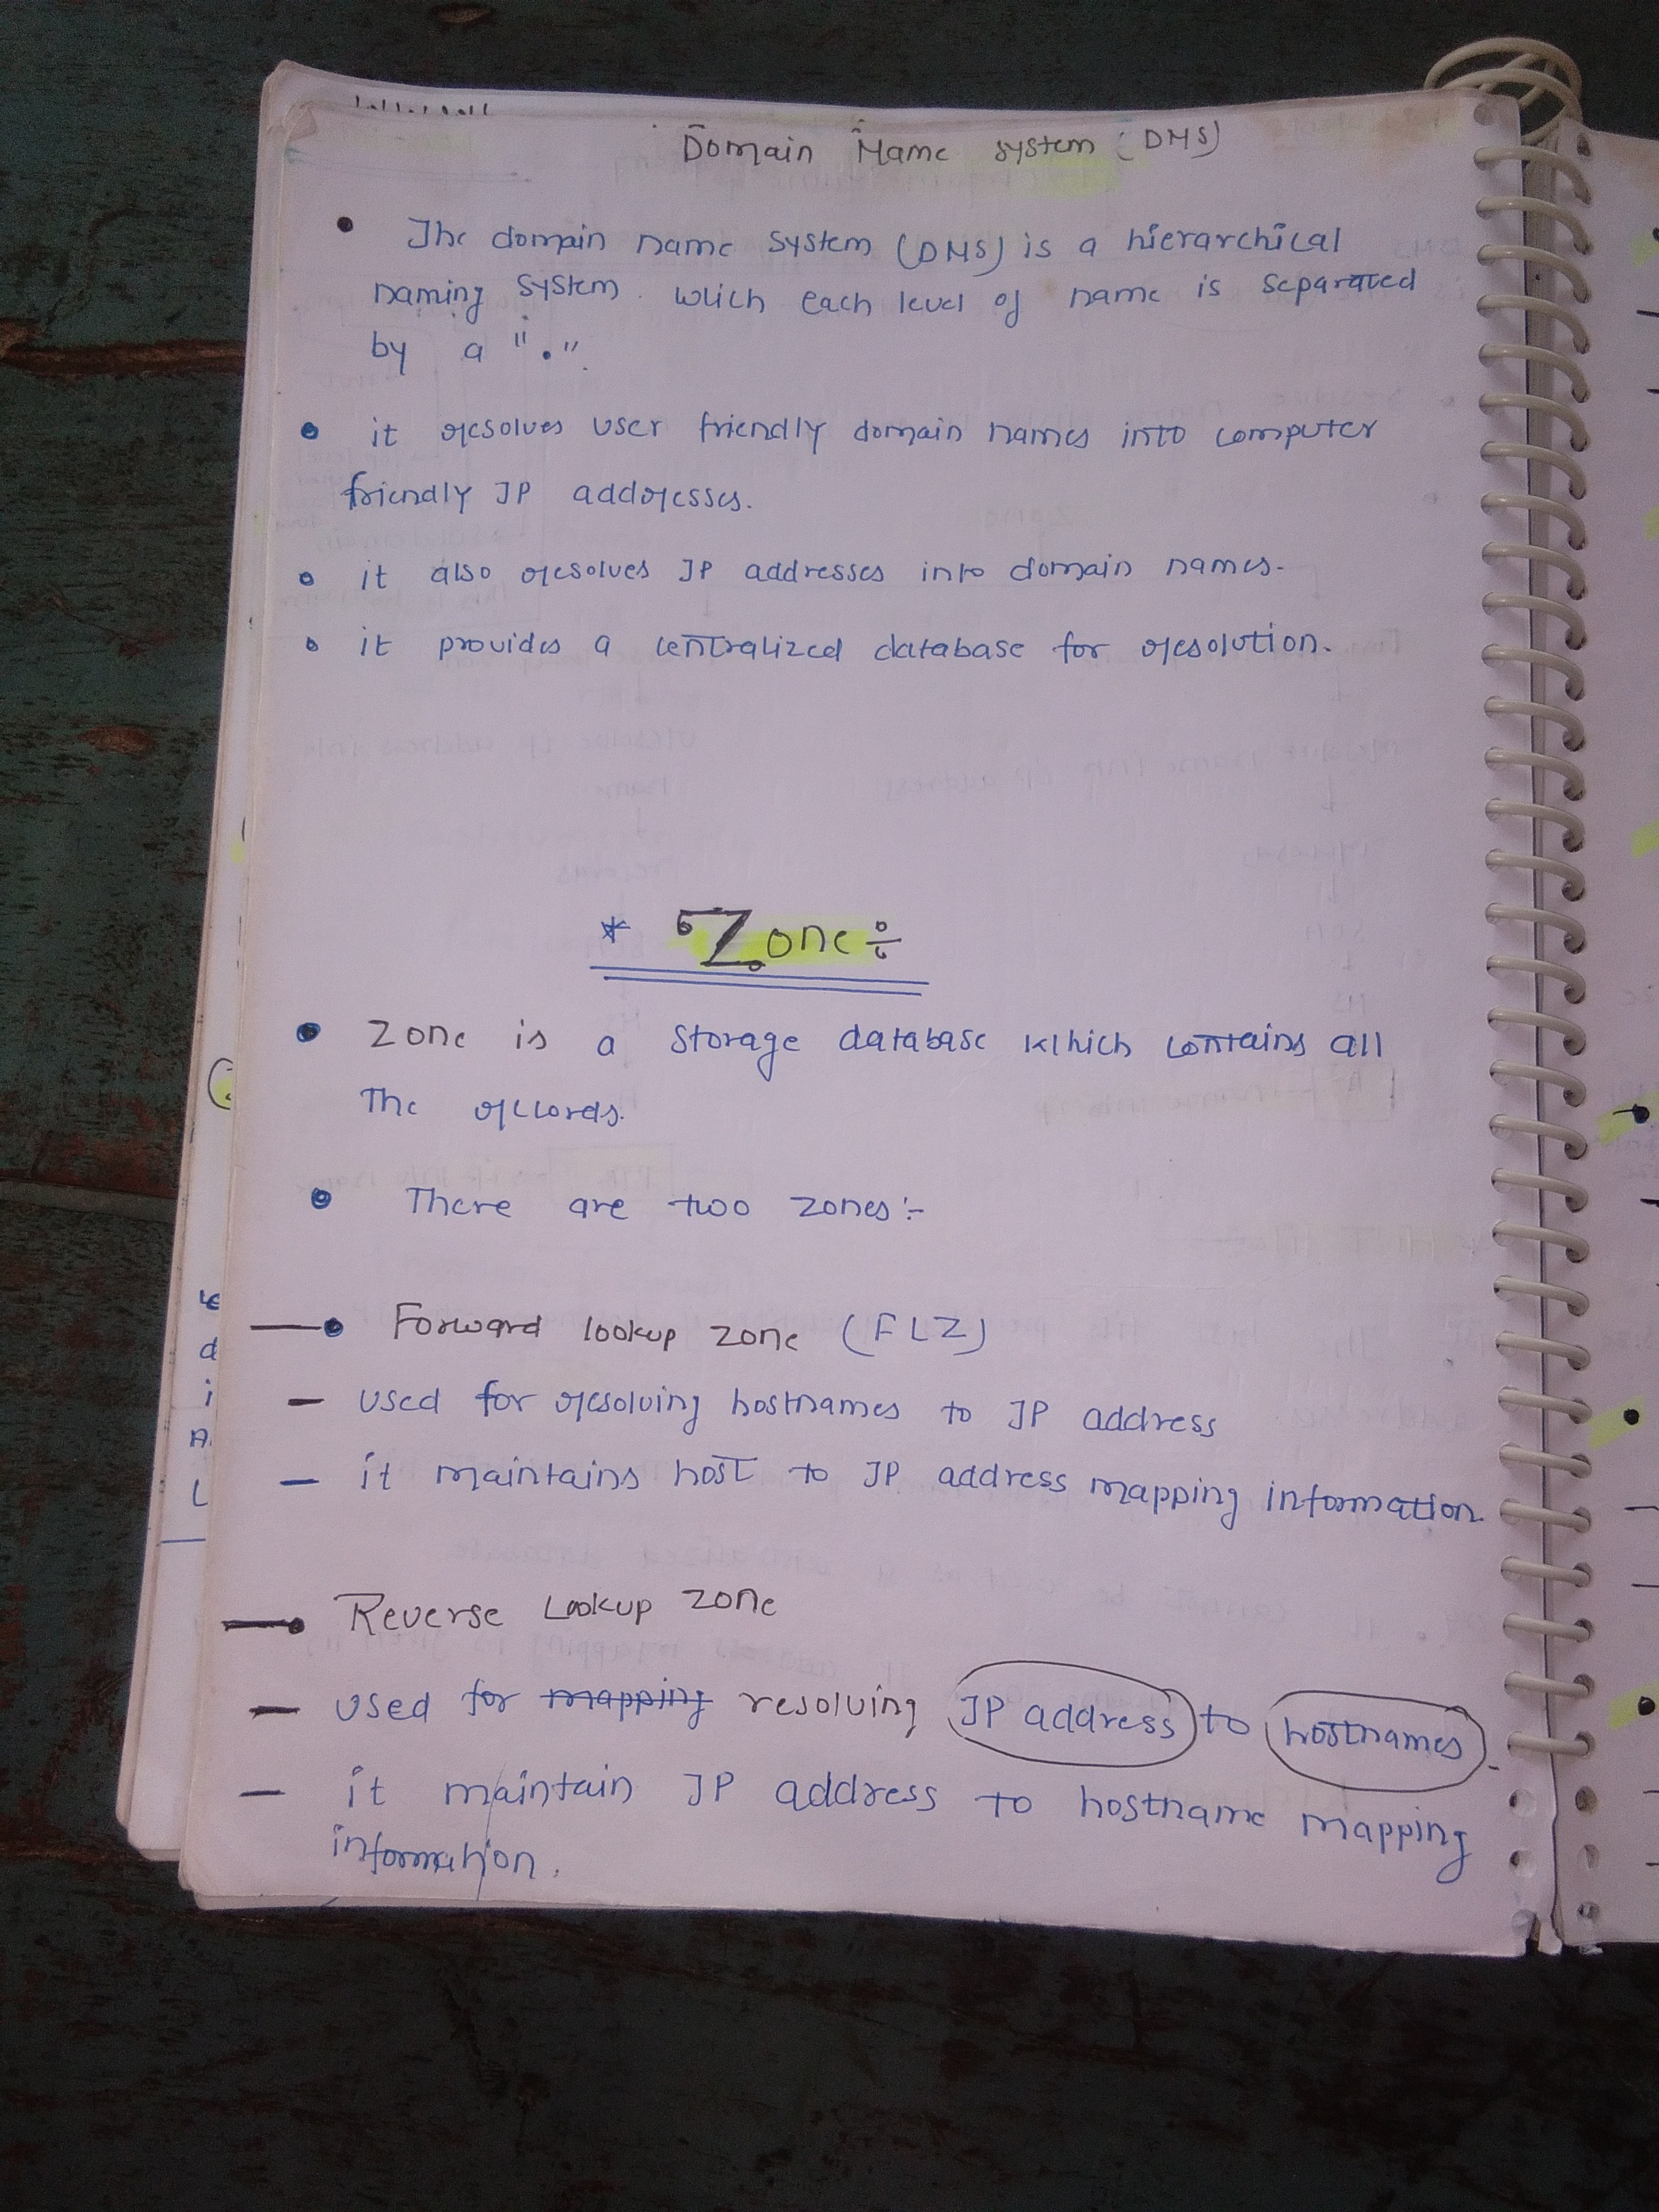 Domain Name system (DNS)
• The domain name system (DNS) is a hierarchical
naming system. wlich each level of name is separated
by a ".".
• it resolves user friendly domain names into computer
friendly IP addresses.
• it also resolves IP addresses into domain names.
• it provides a centralized database for resolution.
* Zone ÷
• Zone is a storage database which contains all
The records.
• There are two zones :-
—• Forward lookup zone (FLZ)
— used for resolving hostnames to IP address
— it maintains host to IP address mapping information.
—• Reverse Lookup zone
— used for mapping resolving IP address to hostnames.
— it maintain IP address to hostname mapping
information.